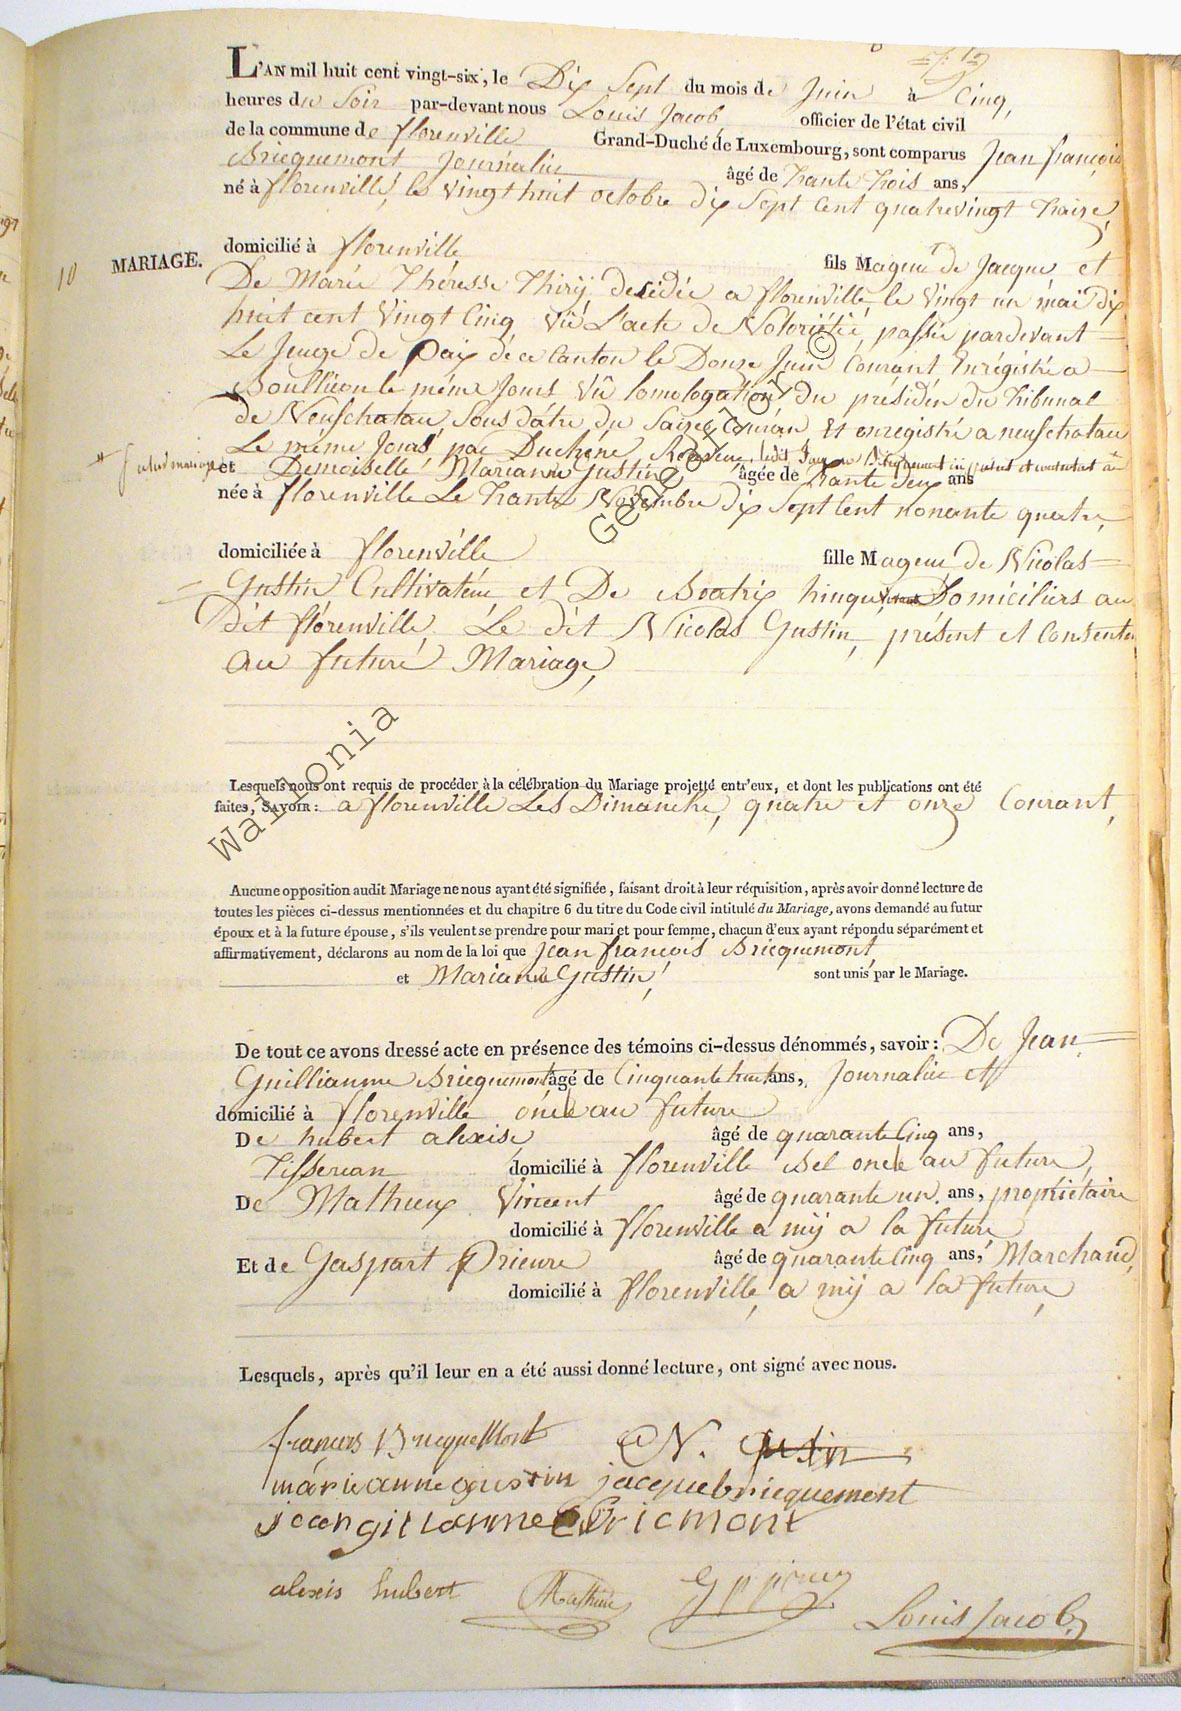 L'AN mil huit cent vingt-six, le Dix Sept du mois de Juin à Cinq,
heures du Soir par-devant nous Louis Jacob, officier de l'état civil
de la commune de florenville Grand-Duché de Luxembourg, sont comparus Jean françois
Bricquemont Journalier âgé de trante trois ans,
né à florenville, le vingt huit octobre dix Sept Cent quatrevingt traise,
domicilié à florenville fils Mageur de Jacque et
10 MARIAGE.
De Marie Thérèsse Thirÿ, desédée a florenville, le vingt un mai dix
huit cent Vingt Cinq Vû L'acte de Notoriétié, passée pardevant
Le Jeuge de Paix de ce Canton le Douze Juin Courant Enrégistré a
Boullion le méme Jours Vû lomologation du présiden du Tribunal
de Neufchatau Sous datre du Saize Couran Et enregistré a neufchatau
Le méme Jours, par Duchéne, Reseveur, ledit Jacque Bricquemont ici présent et consentant au
* futur mariage
et Demoiselle Marianne Gustin âgée de trante deux ans
née à florenville Le trante Novembre dix Sept Cent nonante quatre,
domiciliée à florenville fille Mageur de Nicolas
Gustin Cultivateur et De Beatrix Domiciliers au
dit florenville, Le dit Nicolas Gustin, présent et Consente
au futuré Mariage,
Lesquels nous ont requis de procéder à la célébration du Mariage projetté entr'eux, et dont les publications ont été
faites, SAVOIR: a florenville Les Dimanche, quatre et onze Courant,
Aucune opposition audit Mariage ne nous ayant été signifiée, faisant droit à leur réquisition, après avoir donné lecture de
toutes les pièces ci-dessus mentionnées et du chapitre 6 du titre du Code civil intitulé du Mariage, avons demandé au futur
époux et à la future épouse, s'ils veulent se prendre pour mari et pour femme, chacun d'eux ayant répondu séparément et
affirmativement, déclarons au nom de la loi que Jean françois Bricquemont,
et Marianne Gustin, sont unis par le Mariage.
De tout ce avons dressé acte en présence des témoins ci-dessus dénommés, savoir: De Jean
Guillianme Bricquemont âgé de Cinquante huit ans, Journalier et
domicilié à florenville oncle au future
De hubert alexise, âgé de quarante Cinq ans,
Tisseran domicilié à florenville Bel oncle au future,
De Mathieux Vincent âgé de quarante un ans, propriétaire
domicilié à florenville a mij a la future
Et de Gaspart Prieure âgé de quarante Cinq ans, Marchand,
domicilié à florenville, a mij a la future,
Lesquels, après qu'il leur en a été aussi donné lecture, ont signé avec nous.
françois Bricquemont N. Gustin
marieanne gustin jacquebricquement
jeangillanme Bricmont
alexis hubert Mathieu
Louis Jacob
Wallonia Genealogy.org ©